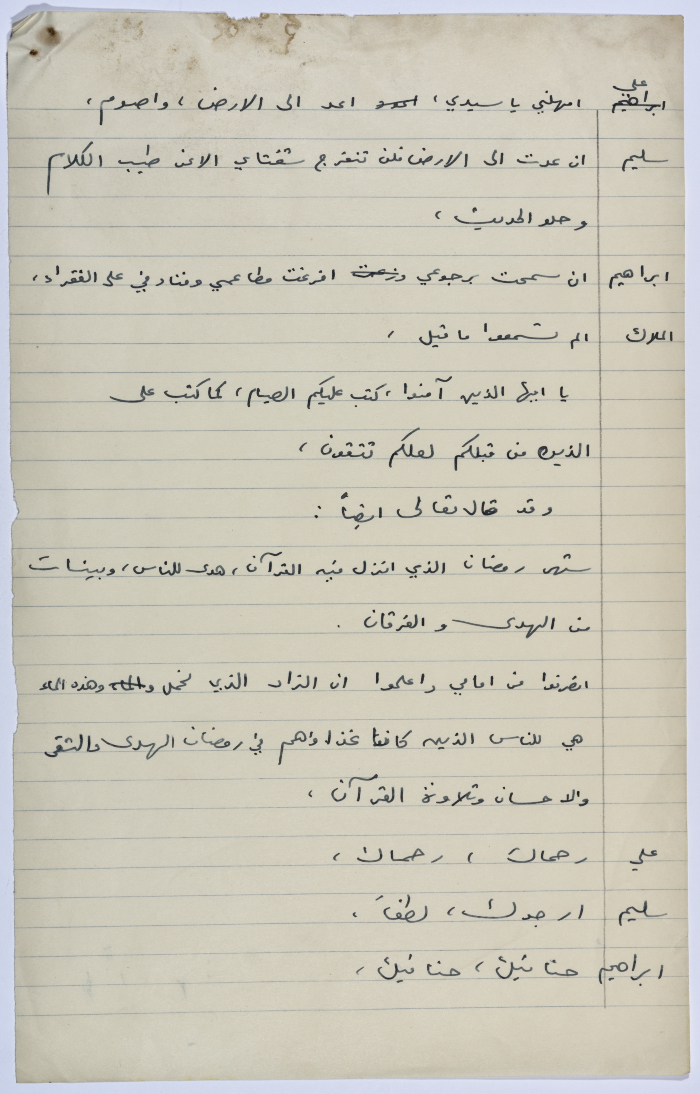 علي
ابراهيم امهلني يا سيدي، اعد الى الارض، واصوم،
سليم ان عدت الى الارض فلن تنفرج شفتاي الا عن طيب الكلام
وحلو الحديث،
ابراهيم ان سمحت برجوعي وزعت افرغت مطاعمي وفنادقي على الفقراء،
الملاك الم تسمعوا ما قيل،
يا ايها الذين آمنوا، كتب عليكم الصيام، كما كتب على
الذين من قبلكم لعلكم تتقون،
وقد قال تعالى ايضاً :
شهر رمضان الذي انزل فيه القرآن، هدى للناس، وبينات
من الهدى والفرقان .
انصرفوا من امامي واعلموا ان الزاد الذي نحمل والماء وهذه الماء
هي للناس الذين كان غذاؤهم في رمضان الهدى والتقى
والاحسان وتلاوة القرآن،
علي رحماك، رحماك،
سليم ارجوك، لطفاً،
ابراهيم حنانيك، حنانيك،